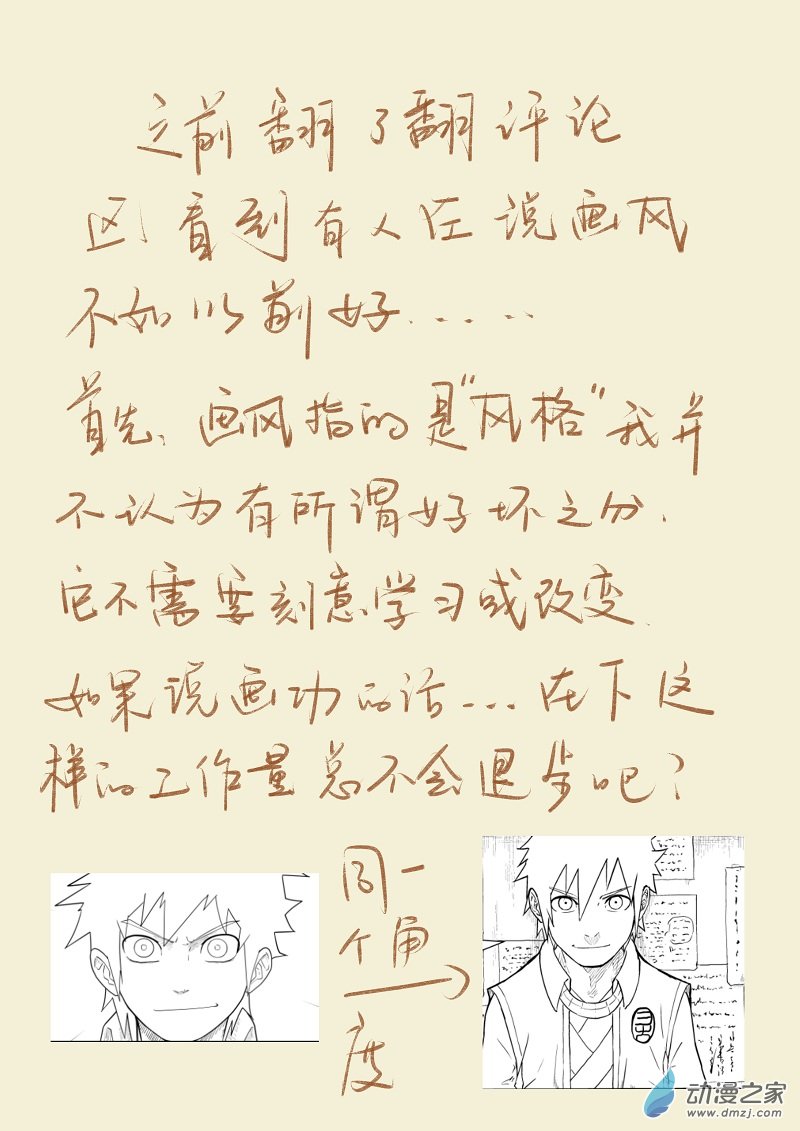 之前翻了翻评论
区,看到有人在说画风
不如以前好.....
首先,画风指的是"风格"我并
不认为有所谓好坏之分,
它不需要刻意学习或改变.
如果说画功的话...在下这
样的工作量总不会退步吧?
同一
个角
度
动漫之家
www.dmzj.com